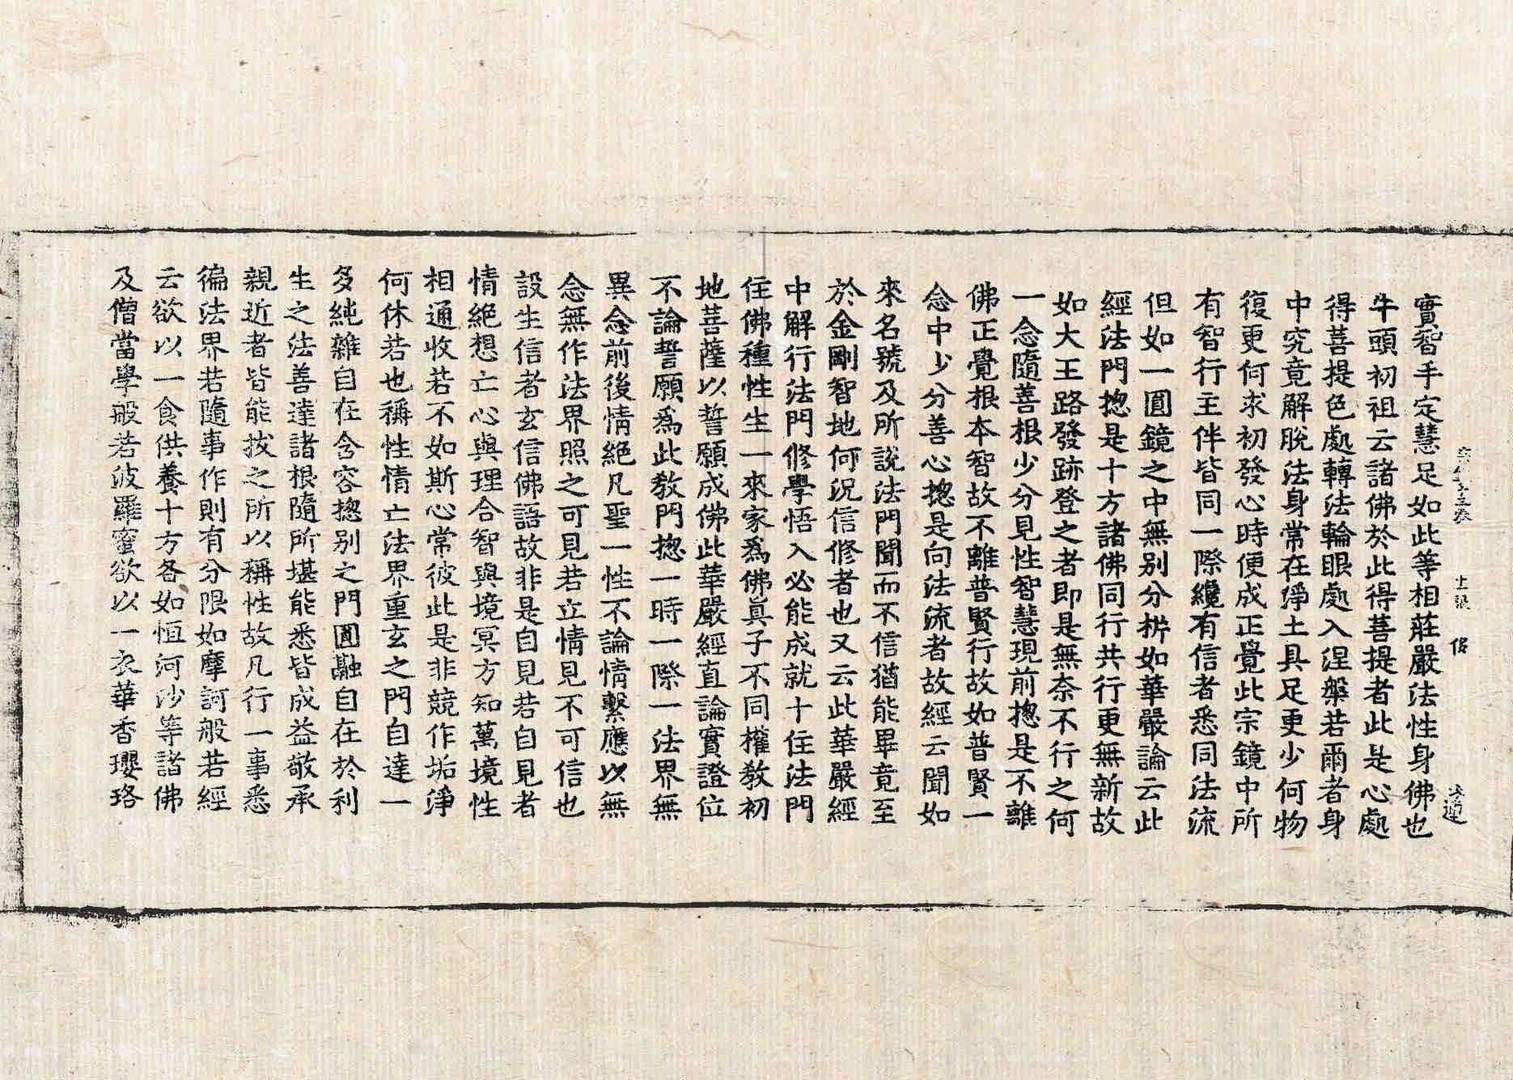 實智手定慧足如此等相莊嚴法性身佛也
牛頭初祖云諸佛於此得菩提者此是心處
得菩提色處轉法輪眼處入涅槃若爾者身
中究竟解脫法身常在淨土具足更少何物
復更何求初發心時便成正覺此宗鏡中所
有智行主伴皆同一際纔有信者悉同法流
但如一圓鏡之中無別分析如華嚴論云此
經法門揔是十方諸佛同行共行更無新故
如大王路發跡登之者即是無奈不行之何
一念隨善根少分見性智慧現前揔是不離
佛正覺根本智故不離普賢行故如普賢一
念中少分善心揔是向法流者故經云聞如
來名號及所說法門聞而不信猶能畢竟至
於金剛智地何況信修者也又云此華嚴經
中解行法門修學悟入必能成就十住法門
住佛種性生一來家爲佛眞子不同權教初
地菩薩以誓願成佛此華嚴經直論實證位
不論誓願爲此教門揔一時一際一法界無
異念前後情絕凡聖一性不論情繫應以無
念無作法界照之可見若立情見不可信也
設生信者玄信佛語故非是自見若自見者
情絕想亡心與理合智與境冥方知萬境性
相通收若不如斯心常彼此是非競作垢淨
何休若也稱性情亡法界重玄之門自達一
多純雜自在含容揔別之門圓融自在於利
生之法善達諸根隨所堪能悉皆成益敬承
親近者皆能拔之所以稱性故凡行一事悉
徧法界若隨事作則有分限如摩訶般若經
云欲以一食供養十方各如恒河沙等諸佛
及僧當學般若波羅蜜欲以一衣華香瓔珞